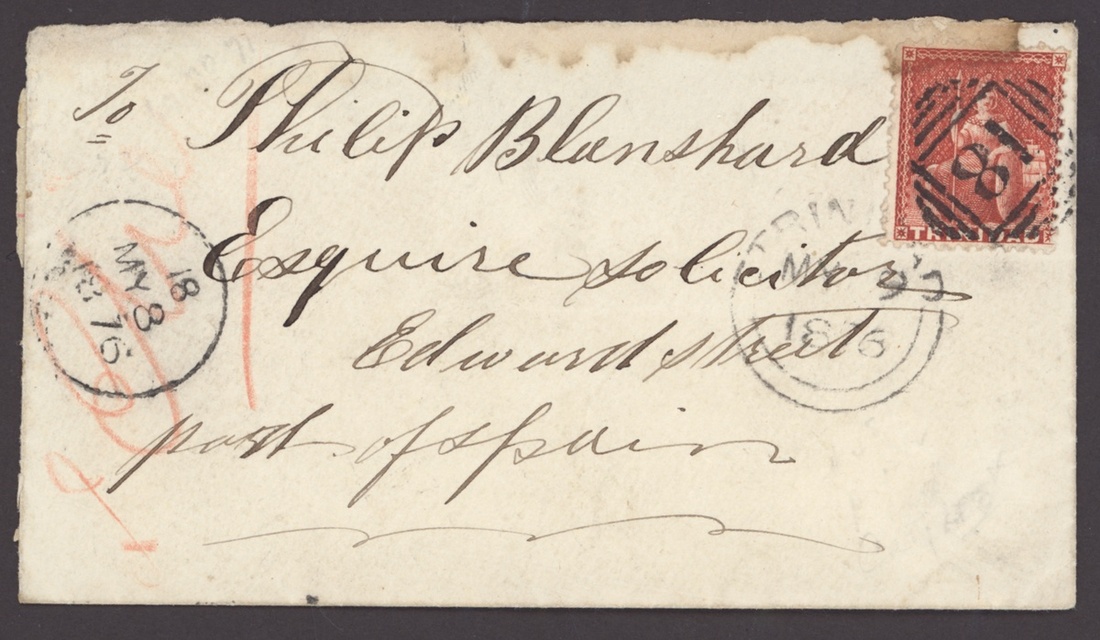 To Philip Blanshard
Esquire solicitor
Edward street
port of spain
TRINIDAD
18
18
MY 8
76
TRIN
MY
1876